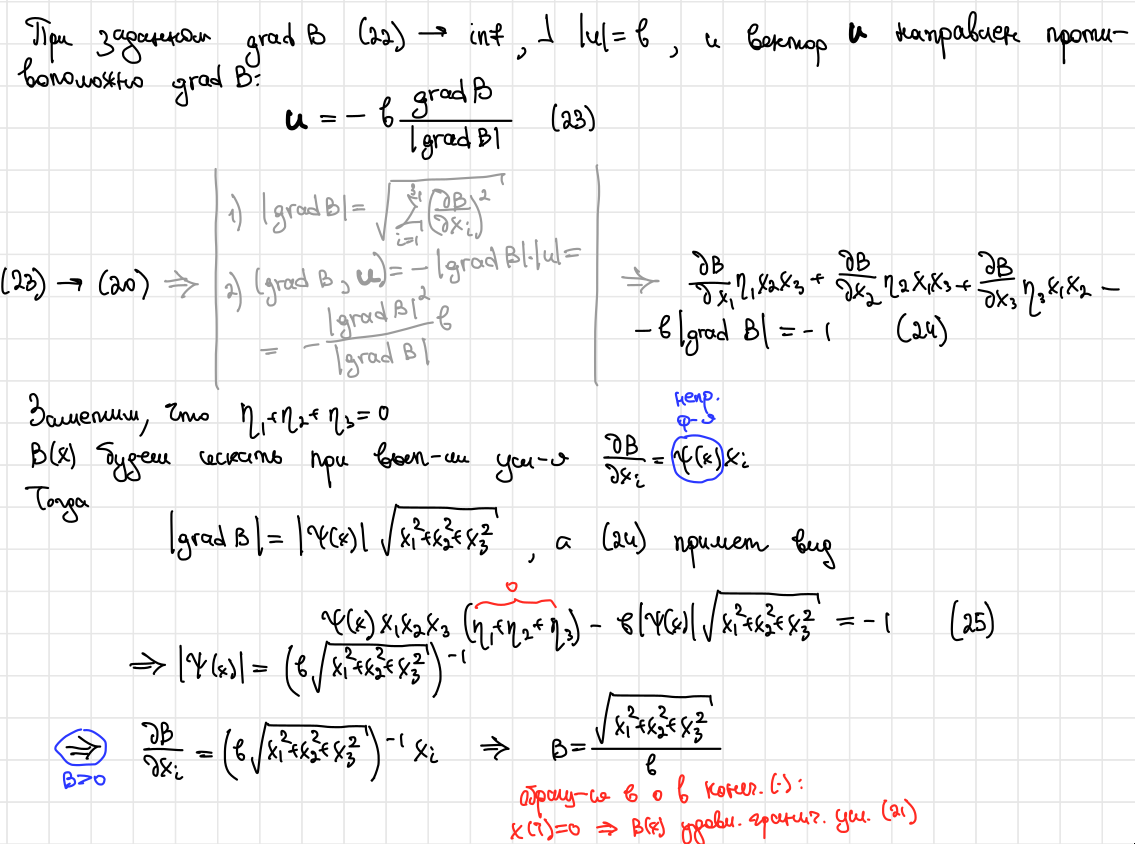 При заданном grad B (22) → inf, ⊥ |u| = b, и вектор u направлен проти-
воположно grad B:
u = − b grad B / |grad B| (23)
1) |grad B| = √(∑_{i=1}^{3} (∂B/∂x_i)²)
(23) → (20) ⇒ 2) (grad B, u) = − |grad B|·|u| =
= − |grad B|² / |grad B| b
⇒ ∂B/∂x₁ η₁x₂x₃ + ∂B/∂x₂ η₂x₁x₃ + ∂B/∂x₃ η₃x₁x₂ −
− b |grad B| = −1 (24)
Заметим, что η₁+η₂+η₃ = 0
непр.
ф-я
B(x) будем искать при вып-ии усл-я ∂B/∂x_i = ψ(x) x_i
Тогда
|grad B| = |ψ(x)| √(x₁²+x₂²+x₃²), а (24) примет вид
0
ψ(x) x₁x₂x₃ (η₁+η₂+η₃) − b|ψ(x)| √(x₁²+x₂²+x₃²) = −1 (25)
⇒ |ψ(x)| = (b√(x₁²+x₂²+x₃²))⁻¹
⇒ ∂B/∂x_i = (b√(x₁²+x₂²+x₃²))⁻¹ x_i ⇒ B = √(x₁²+x₂²+x₃²) / b
B>0
обращ-ся в 0 в конеч. (·):
x(T)=0 ⇒ B(x) удовл. гранич. усл. (21)